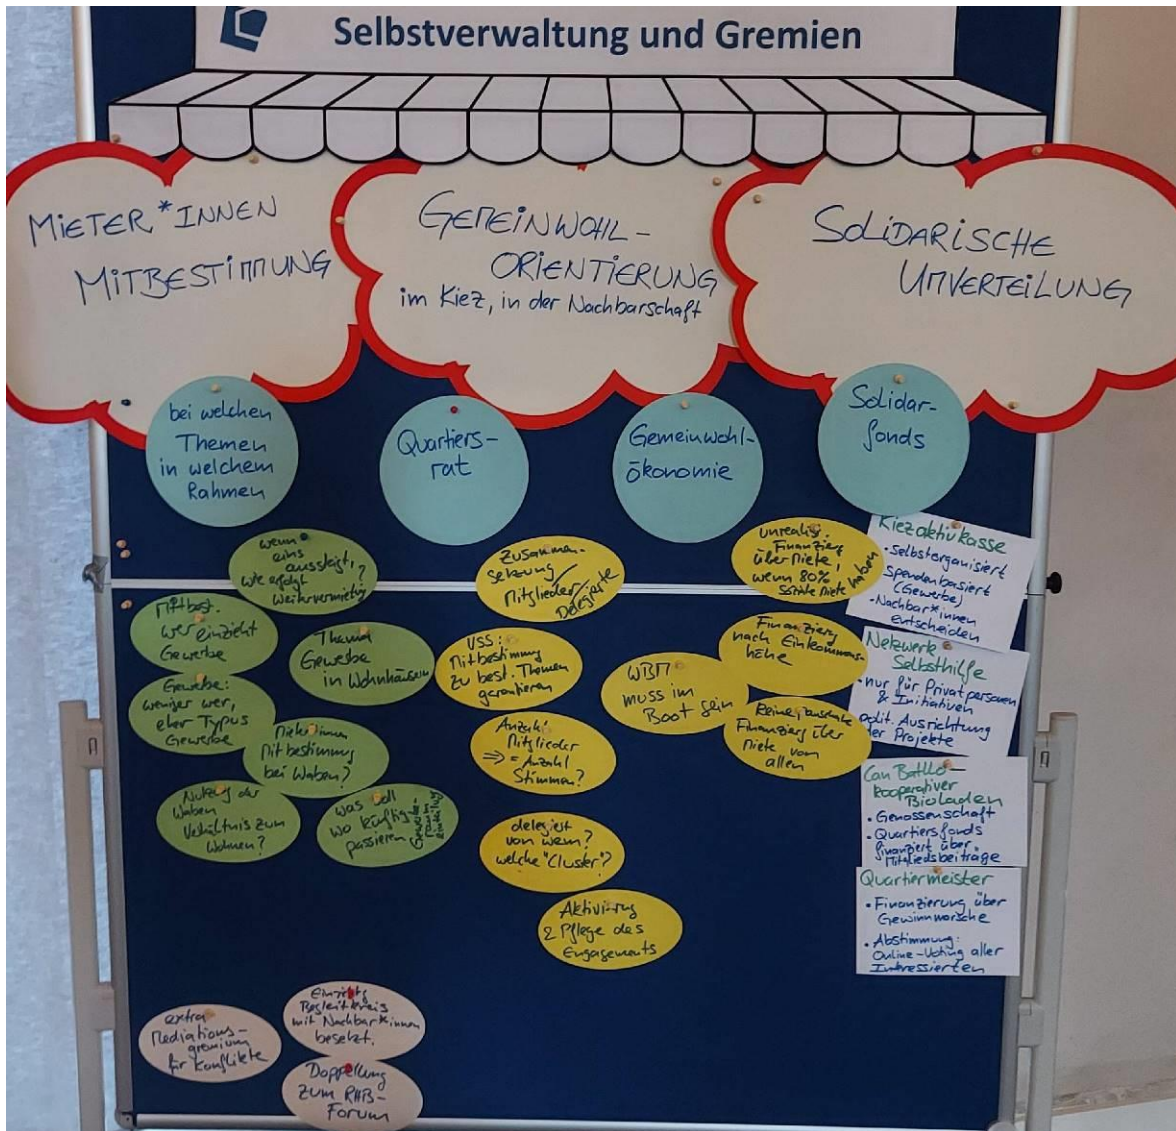 Selbstverwaltung und Gremien
MIETER*INNEN
MITBESTIMMUNG
GEMEINWOHL-
ORIENTIERUNG
im Kiez, in der Nachbarschaft
SOLIDARISCHE
UMVERTEILUNG
bei welchen
Themen
in welchem
Rahmen
Quartiers-
rat
Gemeinwohl-
ökonomie
Solidar-
fonds
wenn
eins
aussteigt,
wie erfolgt
Weitervermietung?
Mitbest.
wer einzieht
Gewerbe
Thema
Gewerbe
in Wohnhäusern
Gewerbe:
weniger wer,
eher Typus
Gewerbe
Mieter*innen
Mitbestimmung
bei Waben?
Nutzung der
Waben
Verhältnis zum
Wohnen?
was soll
wo künftig
passieren
Gewerbe-
raum
Zusammen-
setzung
Mitglieder/
Delegierte
VSS:
Mitbestimmung
zu best. Themen
garantieren
Anzahl
Mitglieder
⇒ = Anzahl
Stimmen?
delegiert
von wem?
welche "Cluster"?
Aktivierung
& Pflege des
Engagements
WBM
muss im
Boot sein
unrealist.
Finanzierg
über Miete,
wenn 80%
soziale Miete haben
Finanzierg
nach Einkommens-
höhe
Keine pauschale
Finanzierg über
Miete von
allen
Kiezaktivkasse
• Selbstorganisiert
Spendenbasiert
(Gewerbe)
• Nachbar*innen
entscheiden
Netzwerk
Selbsthilfe
• nur für Privatpersonen
& Initiativen
polit. Ausrichtung
der Projekte
Can Batlló -
kooperativer
Bioladen
• Genossenschaft
• Quartiersfonds
finanziert über
Mitgliedsbeiträge
Quartiermeister
• Finanzierung über
Gewinnmarsche
• Abstimmung:
Online-Voting aller
Interessierten
extra
Mediations-
gremium
für Konflikte
Begleitkreis
mit Nachbar*innen
besetzt.
Doppellung
zum RHB-
Forum